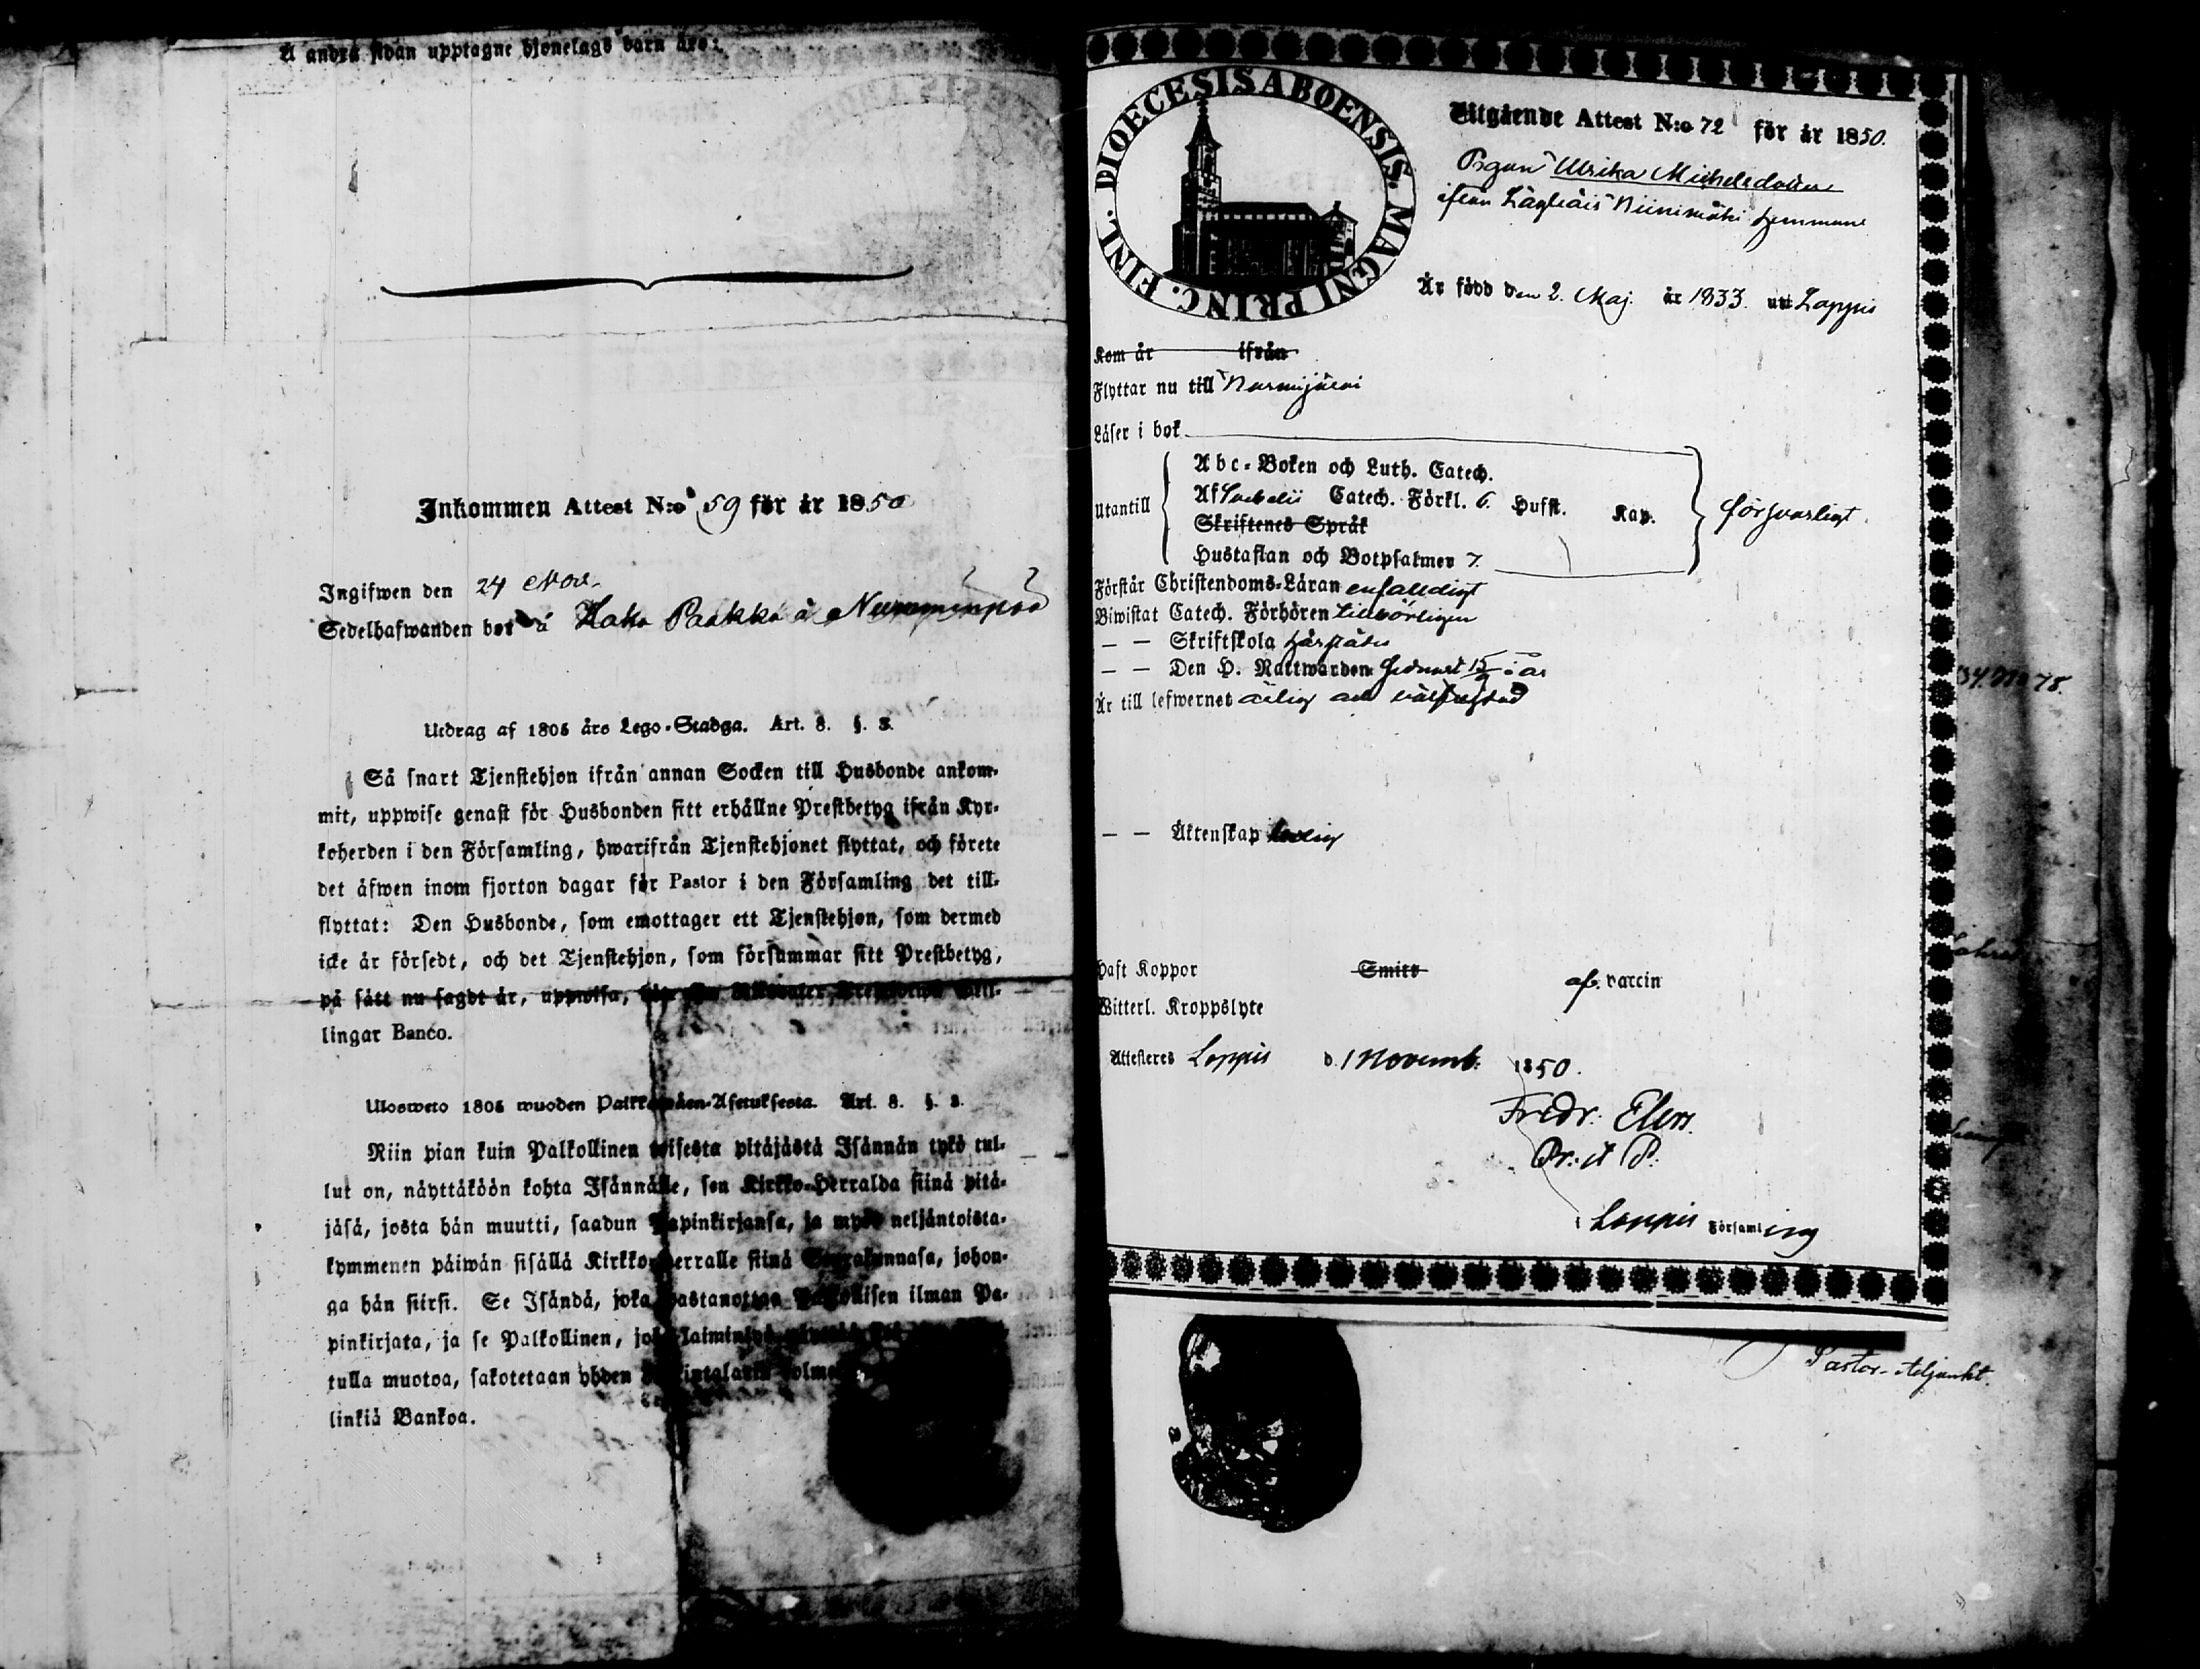 Å andra sidan upptagne hjonelags barn äro:
Inkommen Attest N:o 59 för år 1850
Ingifwen den 24 Nov.
Sedelhafwanden bor å Kaka Paakki å Nummenpää
Utdrag af 1805 års Lego-Stadga. Art. 8. §. 3.
Så snart Tjenstehjon ifrån annan Socken till Husbonde ankom-
mit, uppwise genast för Husbonden sitt erhållne Prestbetyg ifrån Kyr-
koherden i den Församling, hwarifrån Tjenstehjonet flyttat, och förete
det äfwen inom fjorton dagar för Pastor i den Församling det till-
flyttat: Den Husbonde, som emottager ett Tjenstehjon, som dermed
icke är försedt, och det Tjenstehjon, som försummar sitt Prestbetyg,
på sätt nu sagdt är, uppwisa,
lingar Banco.
Ulosweto 1805 wuoden Palkkawäen-Asetuksesta. Art. 8. §. 3.
Niin pian kuin Palkollinen toisesta pitäjästä Isännän tykö tul-
lut on, näyttäköön kohta Isännälle, sen Kirkko-Herralda siinä pitä-
jäsä, josta hän muutti, saadun Papinkirjansa, ja myös neljäntoista-
kymmenen päiwän sisällä Kirkko-Herralle siinä Seurakunnasa, johon-
ga hän siirsi. Se Isändä, joka wastanottaa Palkollisen ilman Pa-
pinkirjata, ja se Palkollinen, joka laiminlyö
tulla muotoa, sakotetaan yhden kolme
linkiä Bankoa.
DIOECESIS ABOENSIS. MAGNI PRINC. FINL.
Utgående Attest N:o 72 för år 1850.
Pigan Ulrika Michelsdotter
ifrån Läyliäis Niinimäki hemman
Är född den 2. Maj. år 1833. uti Loppis
Kom år ifrån
Flyttar nu till Nurmijärvi
Läser i bok
Utantill
Abc-Boken och Luth. Catech.
Af Svebelii Catech. Förkl. 6. Hufst. Kap.
Skriftenes Språk
Hustaflan och Botpsalmer 7.
försvarligt
Förstår Christendoms-Läran enfaldigt
Biwistat Catech. Förhören tillbörligen
— — Skriftskola härstädes
— — Den H. Nattwarden i år
Är till lefwernet ärlig och välfrejdad
— — Äktenskap ledig
Haft Koppor Smitt af. vaccin
Witterl. Kroppslyte
Attesteres Loppis d. 1 Novemb. 1850.
Fredr: Elers.
i Loppis Församling
Pastor-Adjunkt.